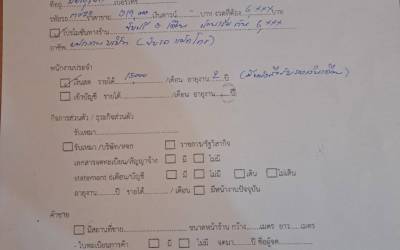 ที่อยู่
รหัสรถ ราคาขาย 319,000 เงินดาวน์ บาท งวดที่ต้อง 6,xxx
รับโปรโมชั่นทางร้าน 3 เดือน
อาชีพ พนักงานบริษัท
พนักงานประจำ
เงินสด รายได้ 15000 /เดือน อายุงาน 2 ปี
เข้าบัญชี รายได้ /เดือน อายุงาน ปี
กิจการส่วนตัว / ธุรกิจส่วนตัว
รับเหมา
รับเหมา/บริษัท/หจก ราชการ/รัฐวิสาหกิจ
เอกสารจดทะเบียน/สัญญาจ้าง มี ไม่มี
statement 6เดือน/บัญชี มี ไม่มี เดิน ไม่เดิน
อายุงาน ปี รายได้ /เดือน มีหน้างานปัจจุบัน
ค้าขาย
มีสถานที่ขาย ขนาดหน้าร้าน กว้าง เมตร ยาว เมตร
- ใบทะเบียนการค้า มี ไม่มี จดมา ปี ชื่อผู้จด